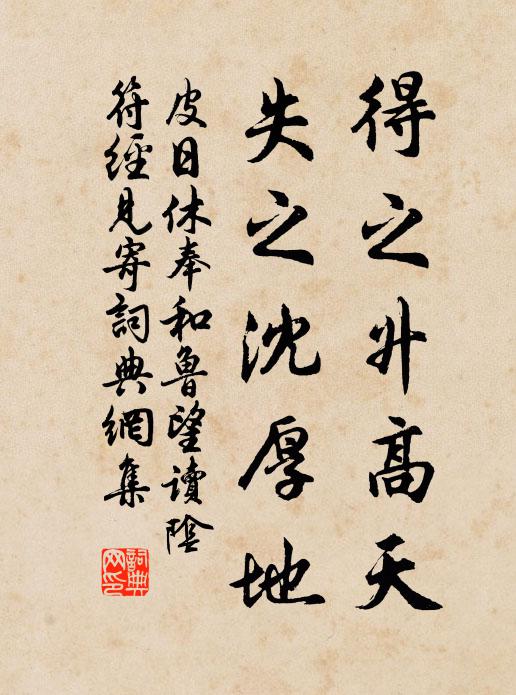 得之升高天
失之沈厚地
皮日休奉和魯望讀陰
符經見寄詞典網集
詞典
网印